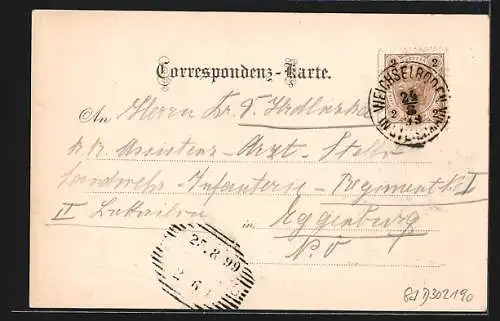 Correspondenz-Karte.
2 2
2
WEICHSELBODEN
24
8
99
IN STEIERMARK
An Herrn Dr. T.
k. k. Assistenz-Arzt-Stellv
Landwehr-Infanterie-Regiment No I
II Bataillon
in Eggenburg
N. Ö
25.8.99
2 6